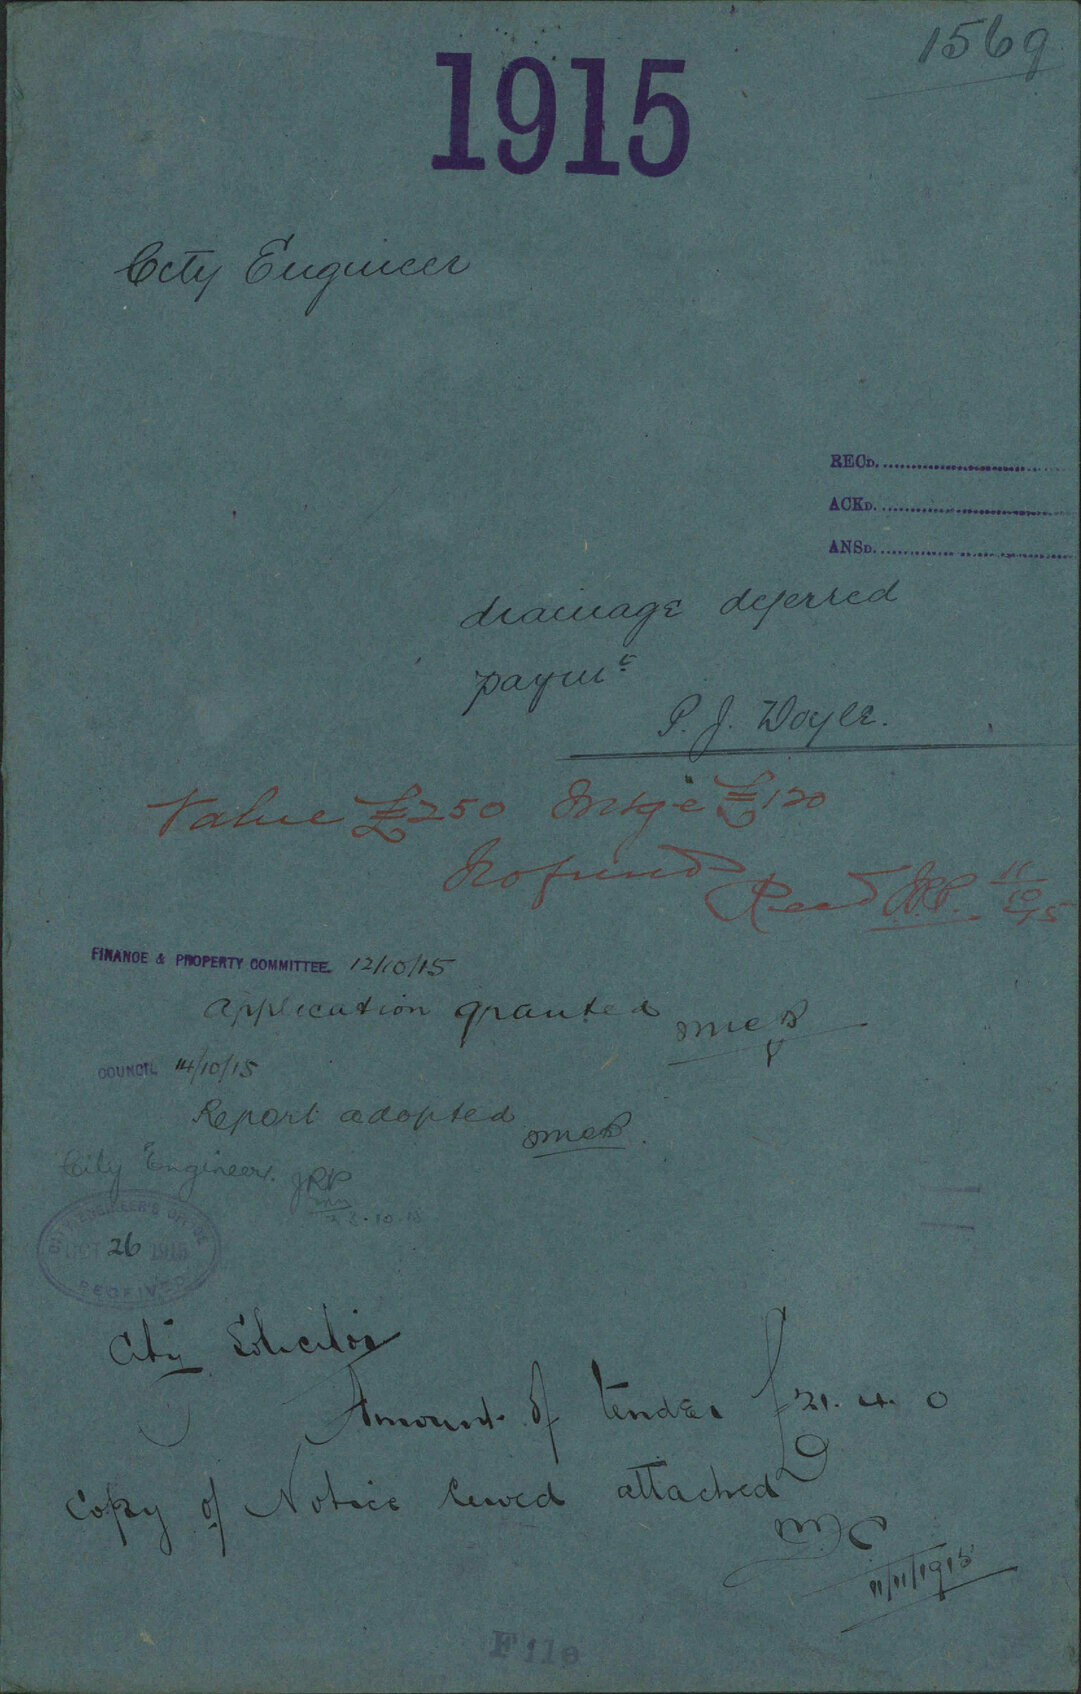 1569
1915
City Engineer
RECD.
ACKD.
ANSD.
drainage deferred
paymt
P. J. Doyle.
Value £250 Mtge £120
Recd JRP. 11/10/15
FINANCE & PROPERTY COMMITTEE 12/10/15
Application granted
COUNCIL 14/10/15
Report adopted
City Engineer. JRP
CITY ENGINEER'S OFFICE
OCT 26 1915
RECEIVED
City Solicitor
Amount of tender £21. 4. 0
Copy of Notice served attached
11/11/1915
File